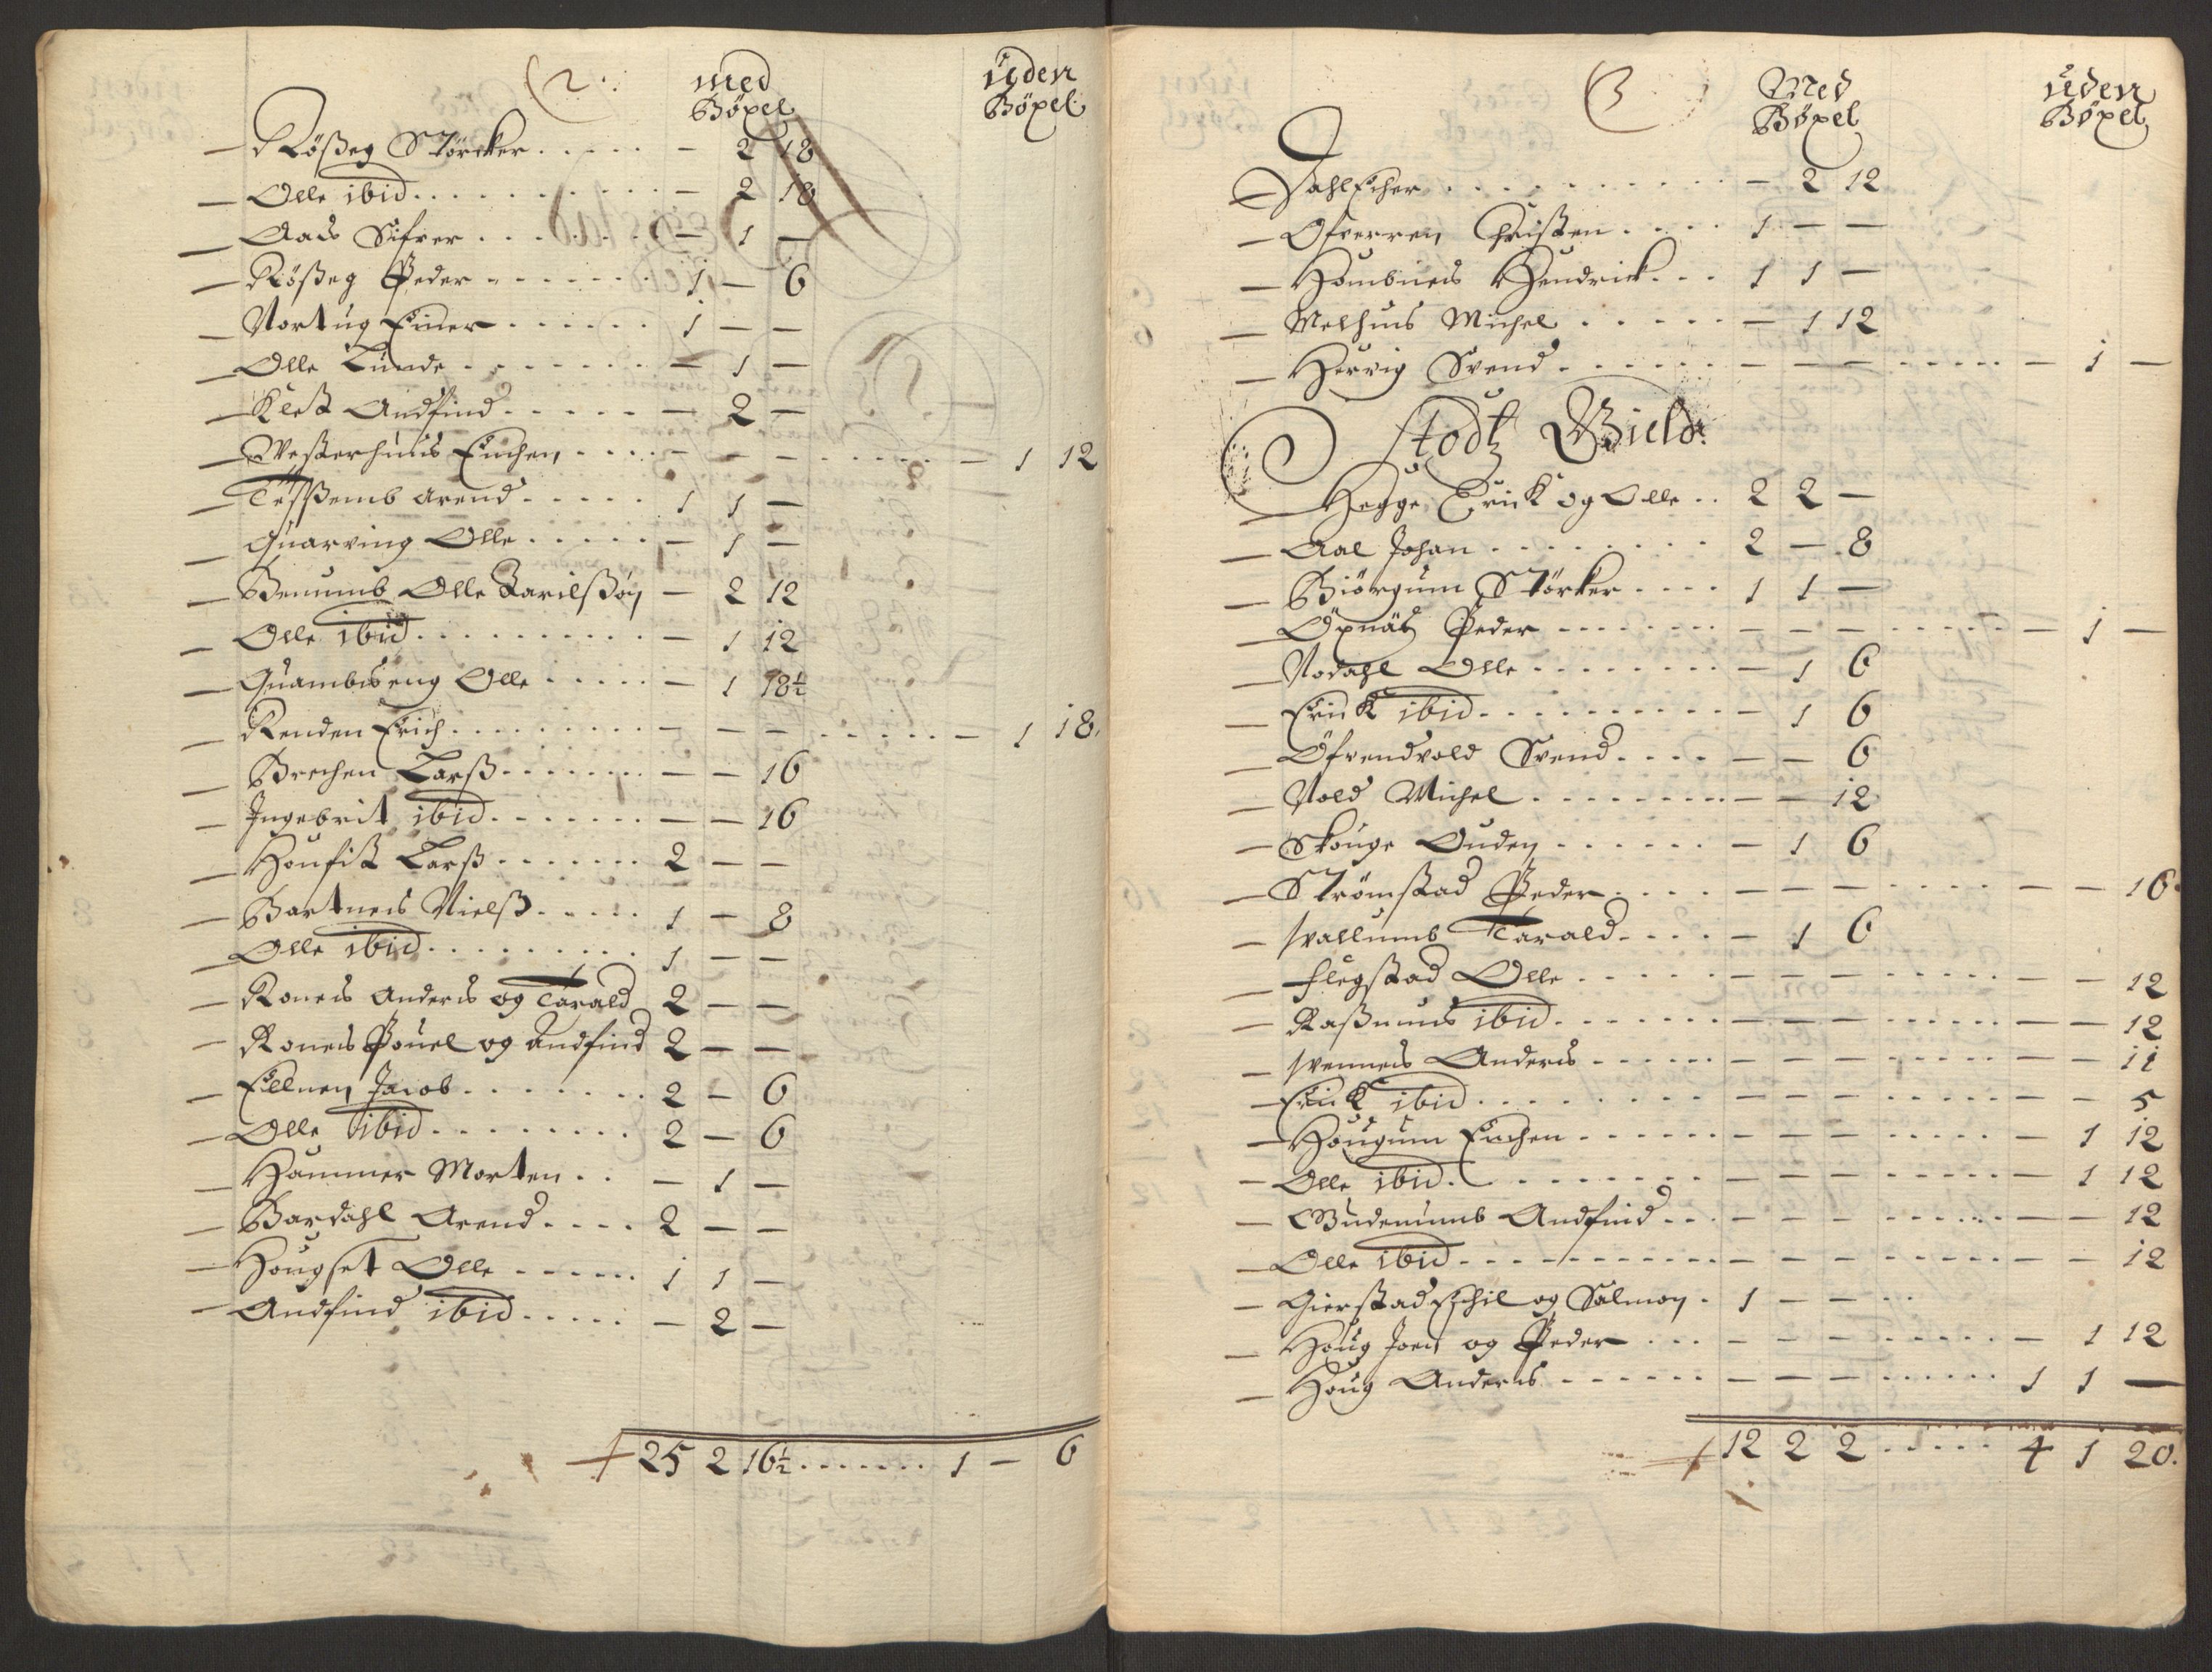 2.
med Böxel
uden Böxel
Rößeg Störcker - 2 18
Olle ibid - 2 18
Aas Sifver - 1 -
Rößeg Peder 1 - 6
Nortug Einer 1 - -
Olle Lunde - 1 -
Kleß Andfind - 2 -
Westerhuus Enchen - - - - 1 12
Arend 1 1 -
Quarving Olle - 1 -
Benumb Olle Barilßøn - 2 12
Olle ibid - 1 12
Quambseng Olle - 1 18½
Renden Erich - - - - 1 18
Brechen Larß - - 16
Ingebrit ibid - - 16
Houfist Larß 2 - -
Bartnes Nielß 1 - 8
Olle ibid 1 - -
Rones Anders og Tarald 2 - -
Rones Pouel og Andfind 2 - -
Ellnen Jacob 2 - 6
Olle ibid 2 - 6
Hammer Morten - 1 -
Bardahl Arend 2 - -
Hougset Olle 1 1 -
Andfind ibid - 2 -
25 2 16½ 1 - 6
3
Med Böxel
uden Böxel
Dahl Esher - 2 12
Ofverren Christen 1 - -
Hombnes Hendrick 1 1 -
Melhuus Michel - 1 12
Herrig Svend - - - - 1 -
Stodtz Gield
Hegge Erick og Olle 2 2 -
Aal Johan 2 - 8
Biörgum Störker 1 1 -
Öxnäs Peder - - - - 1 -
Nodahl Olle - 1 6
Erick ibid - 1 6
Öfvendvold Svend - - 6
Vold Michel - - 12
Skouge Ouden - 1 6
Strömstad Peder - - - - - 16
Wallumb Tarald - 1 6
Flegstad Olle - - - - - 12
Raßmus ibid - - - - - 12
Wennes Anders - - - - - 11
Erick ibid - - - - - 5
Hougum Enchen - - - - 1 12
Olle ibid - - - - 1 12
Budenumb Andfind - - - - - 12
Olle ibid - - - - - 12
Gierstad Eschil og Salmon 1 - -
Houg Joen og Peder - - - - 1 12
Houg Anders - - - 1 1 -
12 2 2 4 1 20